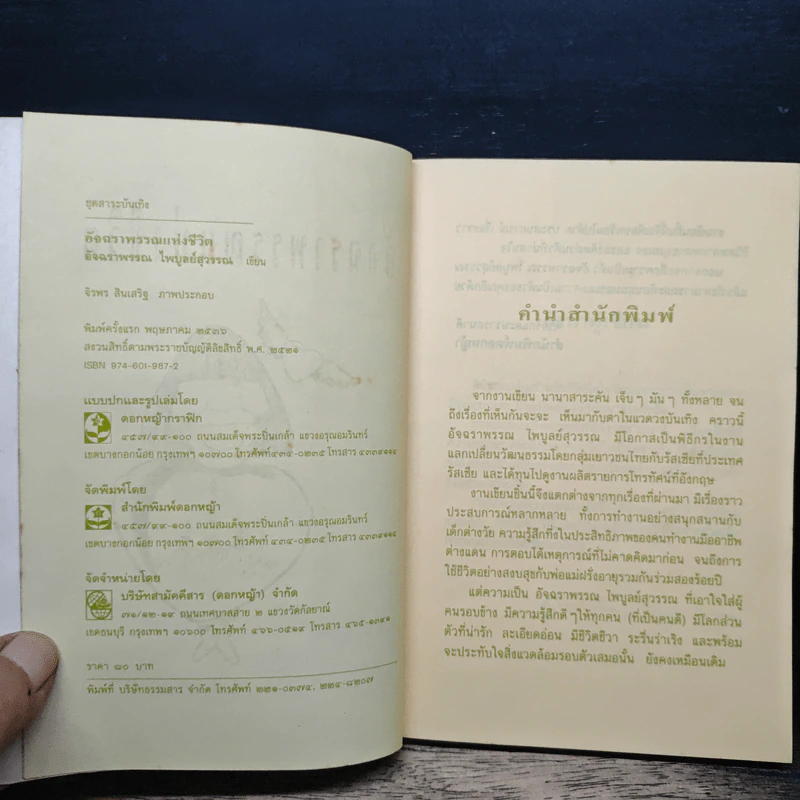 ชุดสาระบันเทิง
อัจฉราพรรณแห่งชีวิต
อัจฉราพรรณ ไพบูลย์สุวรรณ เขียน
จิรพร สินเสริฐ ภาพประกอบ
พิมพ์ครั้งแรก พฤษภาคม ๒๕๓๖
สงวนสิทธิ์ตามพระราชบัญญัติลิขสิทธิ์ พ.ศ. ๒๕๒๑
ISBN 974-601-987-2
แบบปกและรูปเล่มโดย
ดอกหญ้ากราฟิก
๔๕๗/๙๙-๑๐๐ ถนนสมเด็จพระปิ่นเกล้า แขวงอรุณอมรินทร์
เขตบางกอกน้อย กรุงเทพฯ ๑๐๗๐๐ โทรศัพท์ ๔๓๔-๐๒๓๕ โทรสาร
จัดพิมพ์โดย
สำนักพิมพ์ดอกหญ้า
๔๕๗/๙๙-๑๐๐ ถนนสมเด็จพระปิ่นเกล้า แขวงอรุณอมรินทร์
เขตบางกอกน้อย กรุงเทพฯ ๑๐๗๐๐ โทรศัพท์ ๔๓๔-๐๒๓๕ โทรสาร
จัดจำหน่ายโดย
บริษัทสามัคคีสาร (ดอกหญ้า) จำกัด
๗๑/๑๒-๑๙ ถนนเทศบาลสาย ๒ แขวงวัดกัลยาณ์
เขตธนบุรี กรุงเทพฯ ๑๐๖๐๐ โทรศัพท์ ๔๖๖-๐๕๑๙ โทรสาร ๔๖๕-๑๓๕๑
ราคา ๘๐ บาท
พิมพ์ที่ บริษัทธรรมสาร จำกัด โทรศัพท์ ๒๒๑-๐๓๗๔, ๒๒๔-๘๒๐๗
คำนำสำนักพิมพ์
จากงานเขียน นานาสาระคัน เจ็บๆ มันๆ ทั้งหลาย จน
ถึงเรื่องที่เห็นกันจะจะ เห็นมากับตาในแวดวงบันเทิง คราวนี้
อัจฉราพรรณ ไพบูลย์สุวรรณ มีโอกาสเป็นพิธีกรในงาน
แลกเปลี่ยนวัฒนธรรมโดยกลุ่มเยาวชนไทยกับรัสเซียที่ประเทศ
รัสเซีย และได้ทุนไปดูงานผลิตรายการโทรทัศน์ที่อังกฤษ
งานเขียนชิ้นนี้จึงแตกต่างจากทุกเรื่องที่ผ่านมา มีเรื่องราว
ประสบการณ์หลากหลาย ทั้งการทำงานอย่างสนุกสนานกับ
เด็กต่างวัย ความรู้สึกทึ่งในประสิทธิภาพของคนทำงานมืออาชีพ
ต่างแดน การตอบโต้เหตุการณ์ที่ไม่คาดคิดมาก่อน จนถึงการ
ใช้ชีวิตอย่างสงบสุขกับพ่อแม่ฝรั่งอายุรวมกันร่วมสองร้อยปี
แต่ความเป็น อัจฉราพรรณ ไพบูลย์สุวรรณ ที่เอาใจใส่ผู้
คนรอบข้าง มีความรู้สึกดีๆ ให้ทุกคน (ที่เป็นคนดี) มีโลกส่วน
ตัวที่น่ารัก ละเอียดอ่อน มีชีวิตชีวา ระรื่นร่าเริง และพร้อม
จะประทับใจสิ่งแวดล้อมรอบตัวเสมอนั้น ยังคงเหมือนเดิม